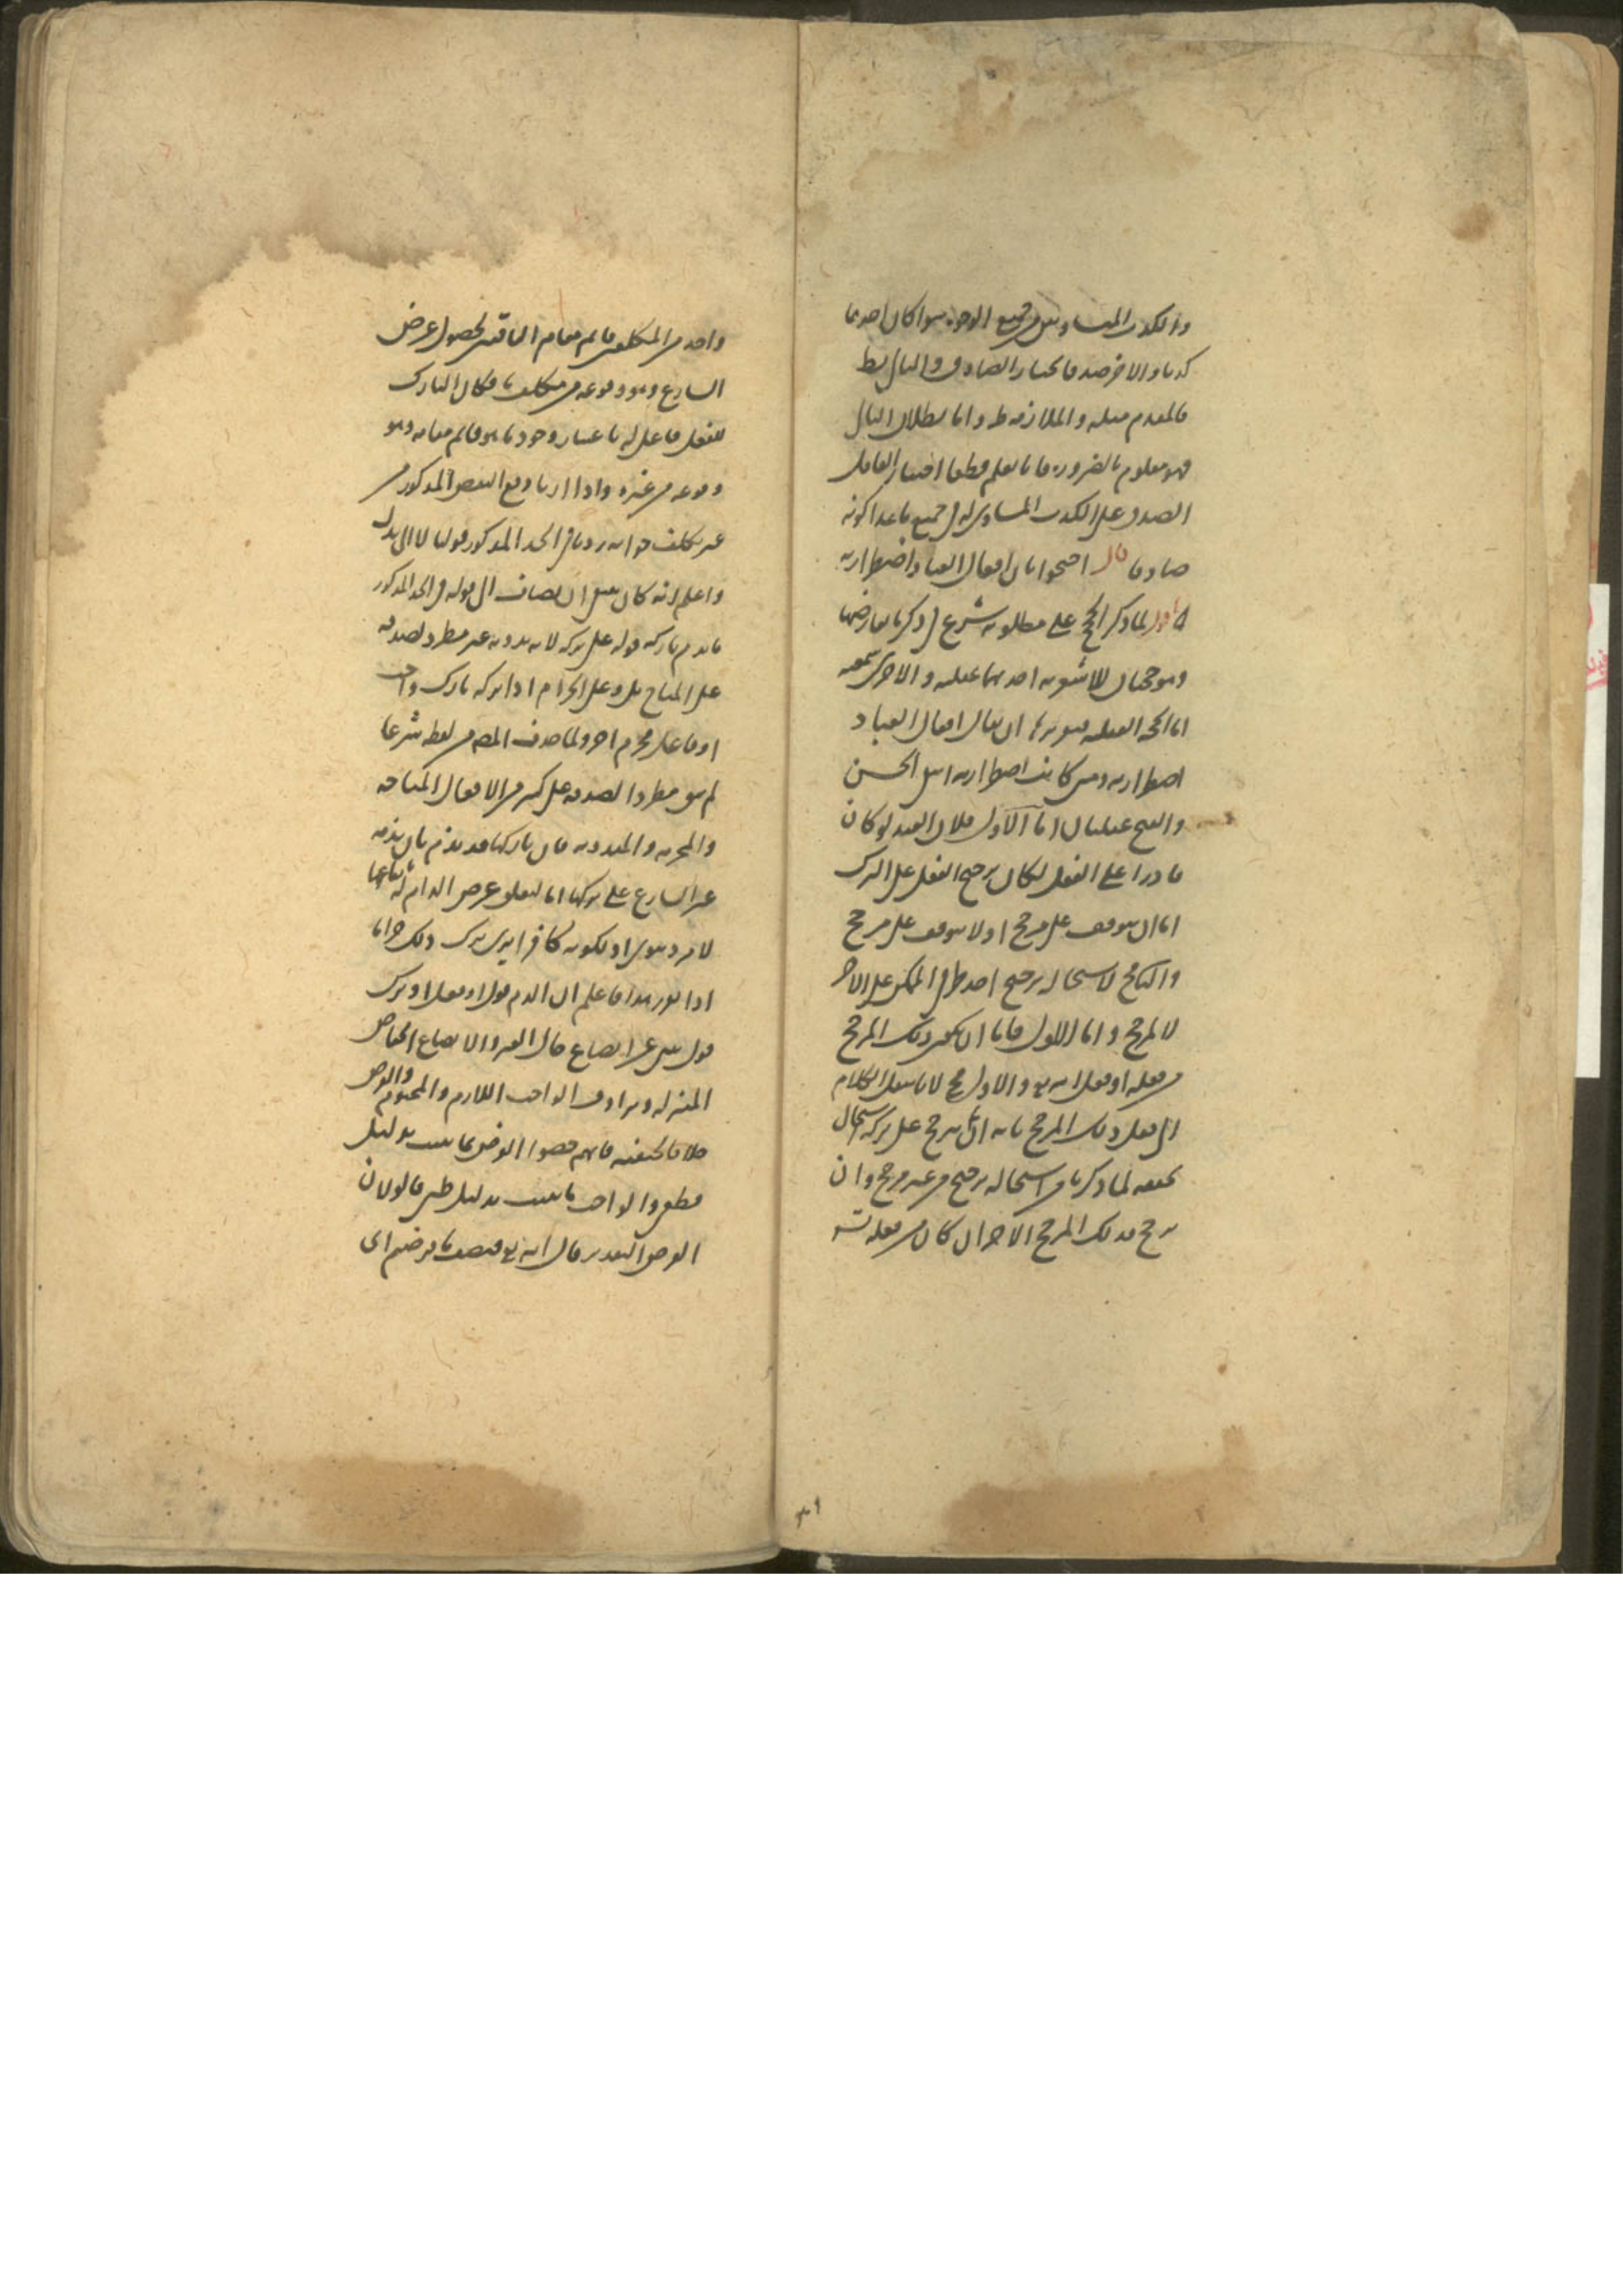 والكذب المتساويين من جميع الوجوه سوا كان احدهما
كذبا والاخر صدقا لمختار الصادق والتالى بط
فالمقدم مثله والملازمة ظ واما بطلان التالى
فهو معلوم بالضرورة فانا نعلم قطعا اختيار العاقل
الصدق على الكذب المساوى له فى جميع ما عدا كونه
صادقا قال احتجوا بان افعال العباد اضطرارية
اقول لما ذكر الحجج على مطلوبه شرع فى ذكر ما يعارضها
وهو حجتان للاشعرية احديهما عقلية والاخرى سمعية
اما الحجة العقلية فتقريرها ان يقال افعال العباد
اضطرارية ومتى كانت اضطرارية انتفى الحسن
والقبح عقليان اما الاول فلان العبد لو كان
قادرا على الفعل لكان ترجيح الفعل على الترك
اما ان يتوقف على مرجح او لا يتوقف على مرجح
والثانى مح لاستحالة ترجيح احد طرفى الممكن على الاخر
لا لمرجح واما الاول فاما ان يكون ذلك المرجح
من فعله او فعل الله تع والاول مح لانا ننقل الكلام
الى فعل ذلك المرجح بانه ان لم يترجح على تركه استحال
تحققه لما ذكرنا من استحالة ترجيح من غير مرجح وان
ترجح فذلك المرجح الاخر ان كان من فعله تس
واحد من المكلفين قائم مقام الباقين لحصول غرض
الشارع وهو وقوعه من مكلف ما فكان التارك
للفعل فاعل له باعتبار وجود ما هو قائم مقامه وهو
وقوعه من غيره واذا اردنا دفع النقص المذكور من
غير تكلف جوابه زدنا فى الحد المذكور قولنا لا الى بدل
واعلم انه كان ينبغى ان يضاف الى قوله فى الحد المذكور
ما يذم تاركه قوله على تركه لانه بدونه غير مطرد لصدقه
على المباح بل وعلى الحرام اذا تركه تارك واجب
او فاعل محرم اخر ولما حذف المصر لفظه شرعا
لم يبق مطردا لصدقه على كثير من الافعال المباحة
والمحرمة والمندوبة فان تاركها قد يذم بان يذمه
غير الشارع على تركها اما لتعلق غرض الذام له بفعلها
لامر دنيوى او لكونه كافرا يرى ترك ذلك حراما
اذا تقرر هذا فاعلم ان الذم قول او فعل او ترك
قول ينبى عن اتضاع حال الغير والاتضاع انخفاض
المنزلة ويرادف الواجب اللازم والمحتوم والفرض
خلافا للحنفية فانهم خصوا الفرض بما ثبت بدليل
قطعى والواجب ما ثبت بدليل ظنى قالوا لان
الفرض التقدير قال الله تع فنصف ما فرضتم اى